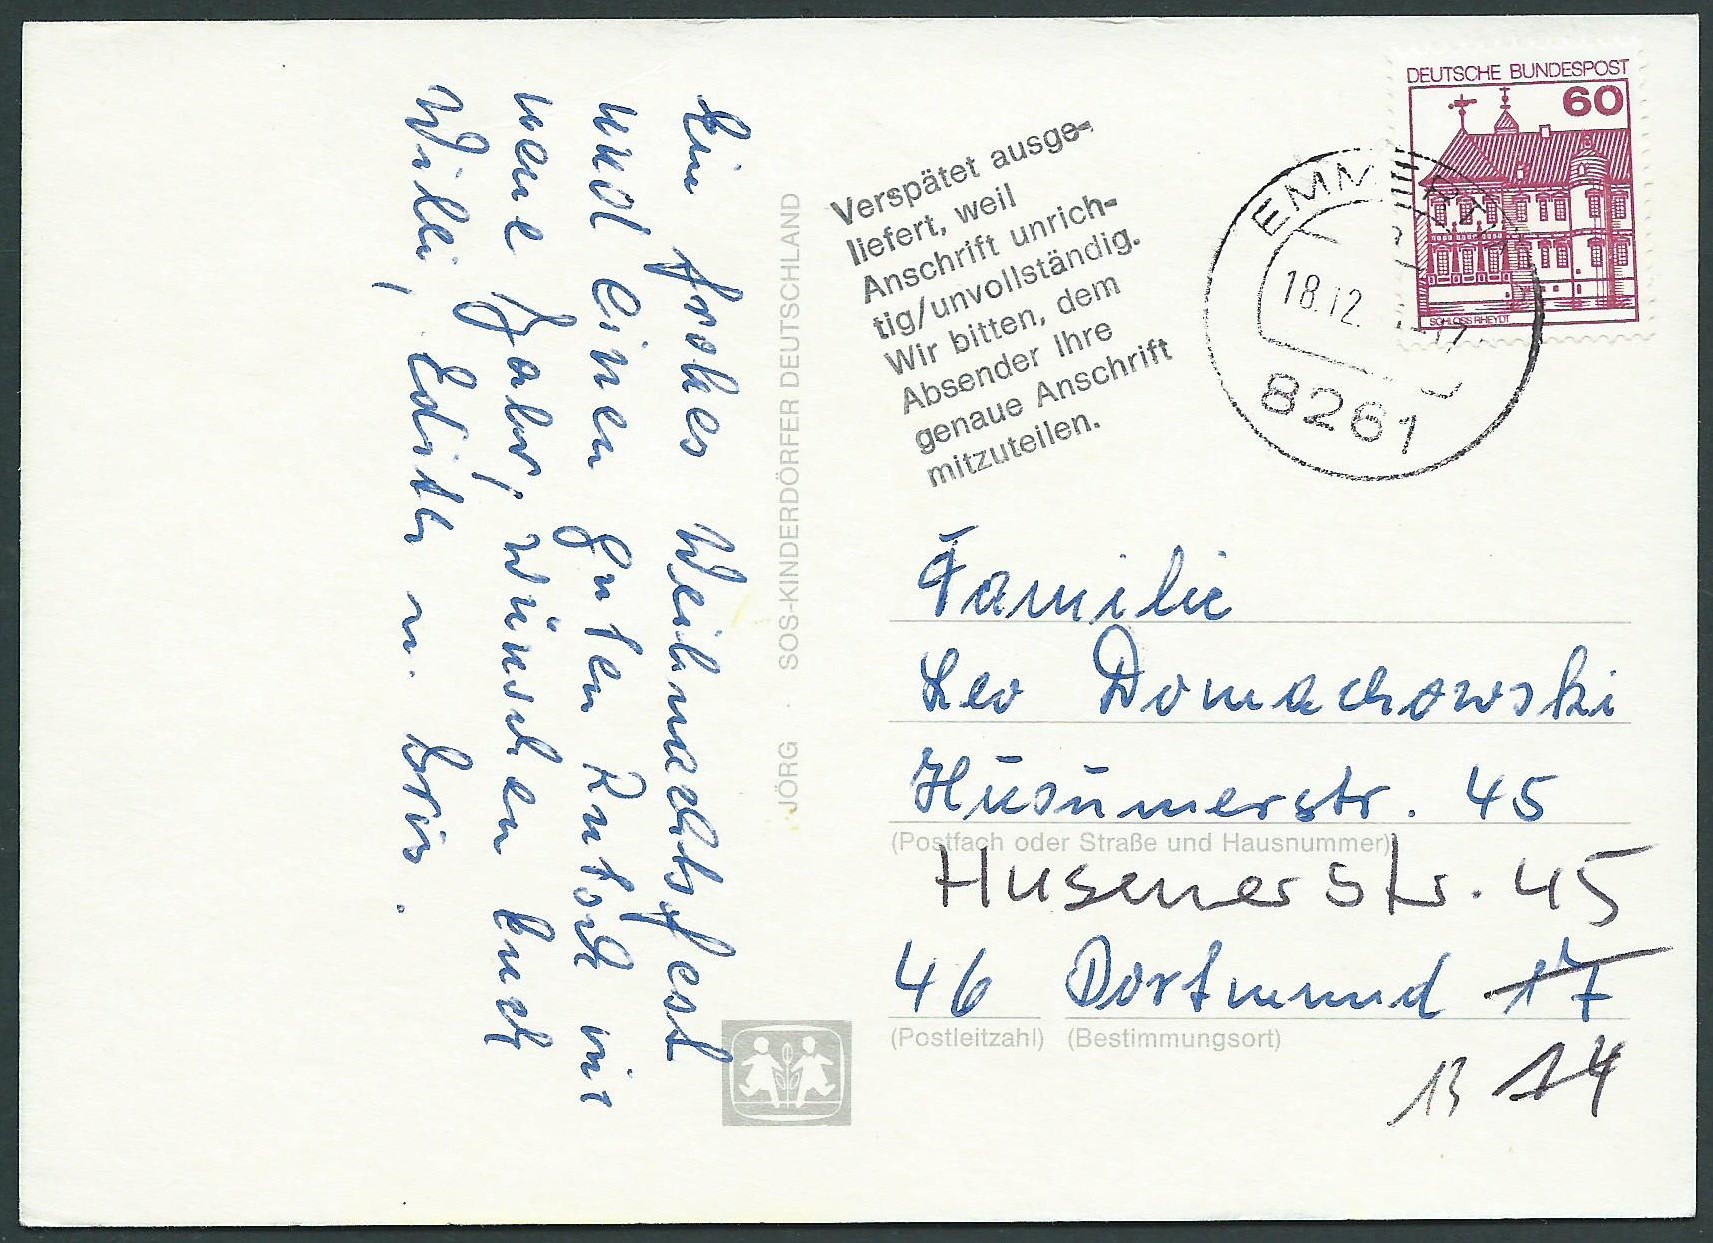 Ein frohes Weihnachtsfest
und einen guten Rutsch ins
neue Jahr, wünschen Euch
Willi, Edith u. Doris.
JÖRG · SOS-KINDERDÖRFER DEUTSCHLAND
Verspätet ausge-
liefert, weil
Anschrift unrich-
tig/unvollständig.
Wir bitten, dem
Absender Ihre
genaue Anschrift
mitzuteilen.
DEUTSCHE BUNDESPOST
60
SCHLOSS RHEYDT
18.12.
8261
Familie
Leo Domachowski
Husumerstr. 45
(Postfach oder Straße und Hausnummer)
Husener Str. 45
46 Dortmund 17
(Postleitzahl) (Bestimmungsort)
13 14